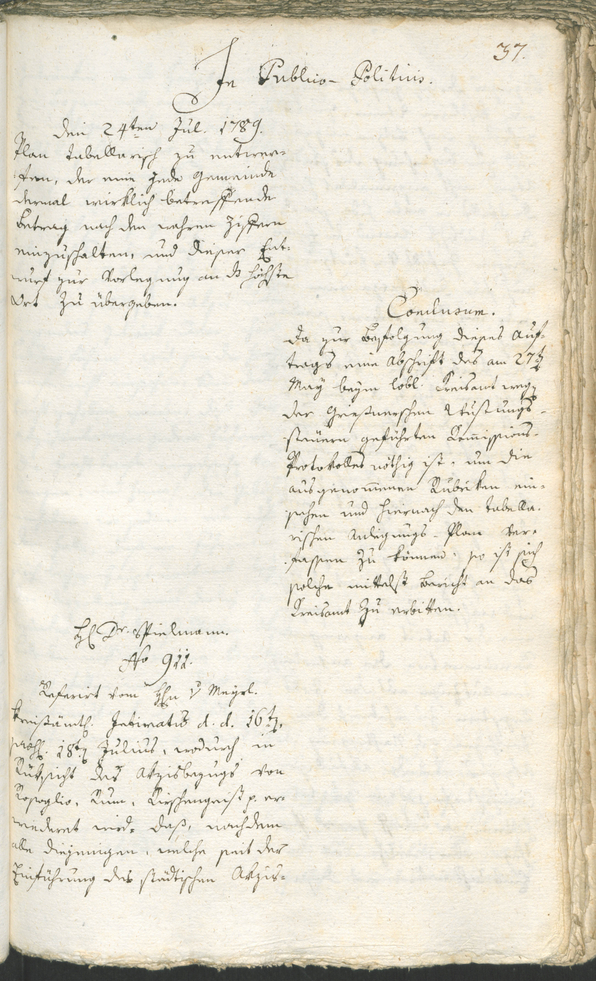 37.
In Publico-Politicis.
Den 24ten Jul. 1789.
Plan tabellarisch zu entwer-
fen, der eine jede Gemeinde
dermal wirklich betreffende
Betrag nach den wahren Ziffern
einzuschalten, und dieser Ent-
wurf zur Vorlegung an die höchste
Ort zu übergeben.
Conclusum.
Da zur Befolgung dieses Auf-
trags eine Abschrift des am 27t
May beym löbl. Kreisamt weg
der Rüstungs-
steuern geführten Kommissions-
Protokolles nöthig ist, um die
ausgenommenen Rubriken ein-
sehen und hiernach den tabella-
rischen Anlegungs-Plan ver-
fassen zu können, so ist sich
solche mittelst Bericht an das
Kreisamt zu erbitten.
H Dr. Spielmann.
No 911.
Referirt vom Hhn v Mayrl.
Kreisämtl. Intimatum d. d. 16t,
18t Julius, wodurch in
Rücksicht des Akzisbezugs von
Rosoglio, Rum, Kirschengeist p. er-
wiederet wird, daß, nachdem
alle diejenigen, welche seit der
Einführung des städtischen Akzis-